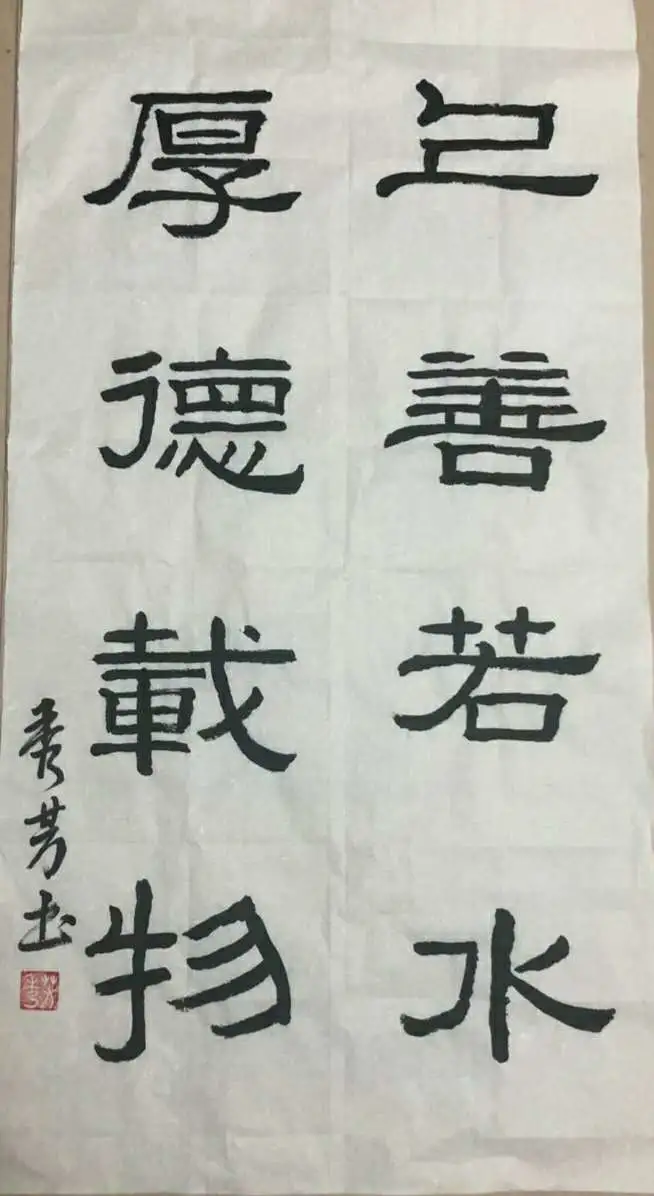 上善若水
厚德載物
秀芳书